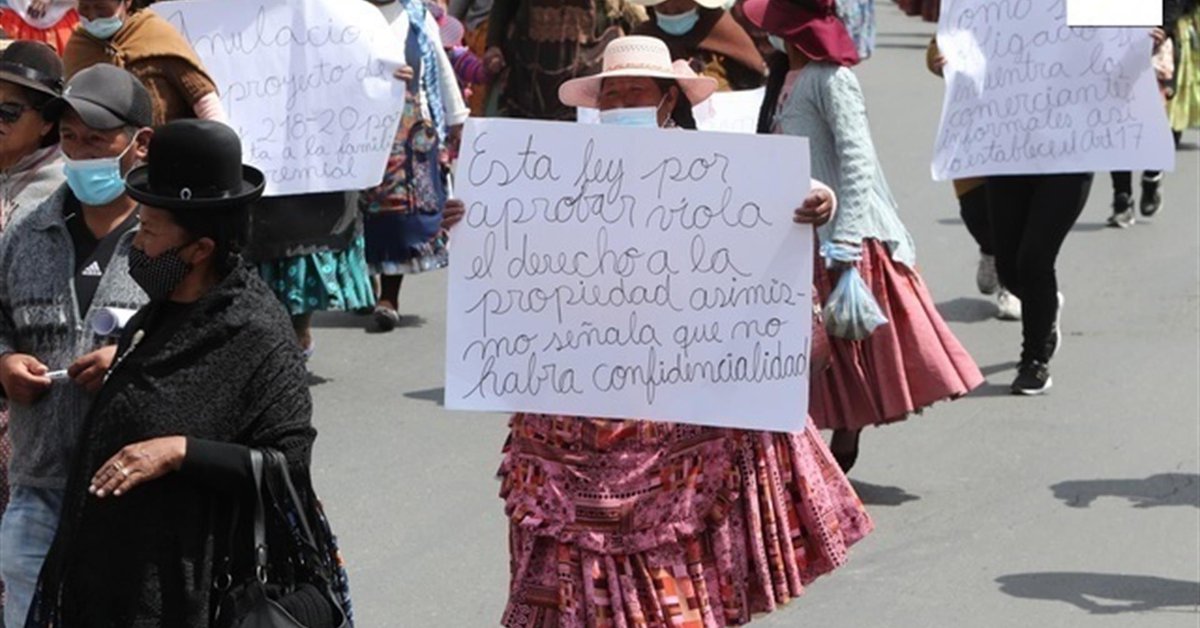 Anulacion
proyecto de
218-20 por
ta a la familia
gremial
Esta ley por
aprobar viola
el derecho a la
propiedad asimis-
mo señala que no
habra confidencialidad
como s
ligado s
entra lo
comerciante
informales asi
lo establece el Art 17
adidas